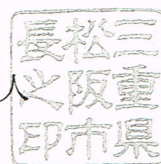 三重県
松阪市
長之印